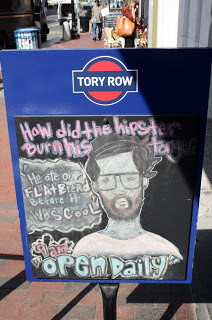 TORY ROW
How did the hipster
Burn his Tongue
"He ate our
FLATBREAD
Before it
was cool"
OPEN DAILY